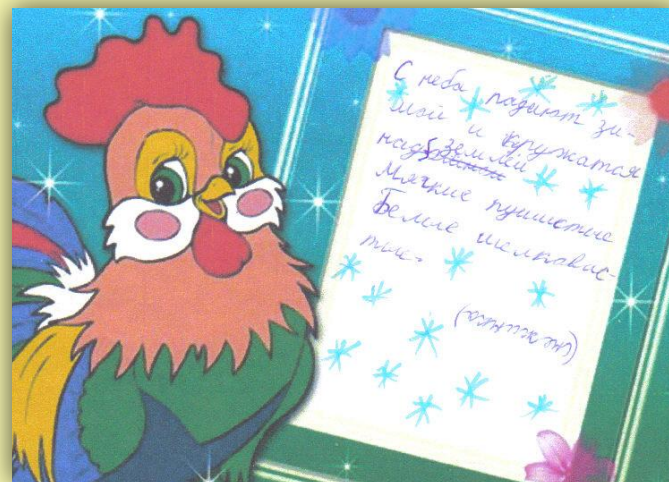 С неба падают зи-
мой и кружатся
над землёй
Мягкие пушистые
Белые шелковис-
тые.